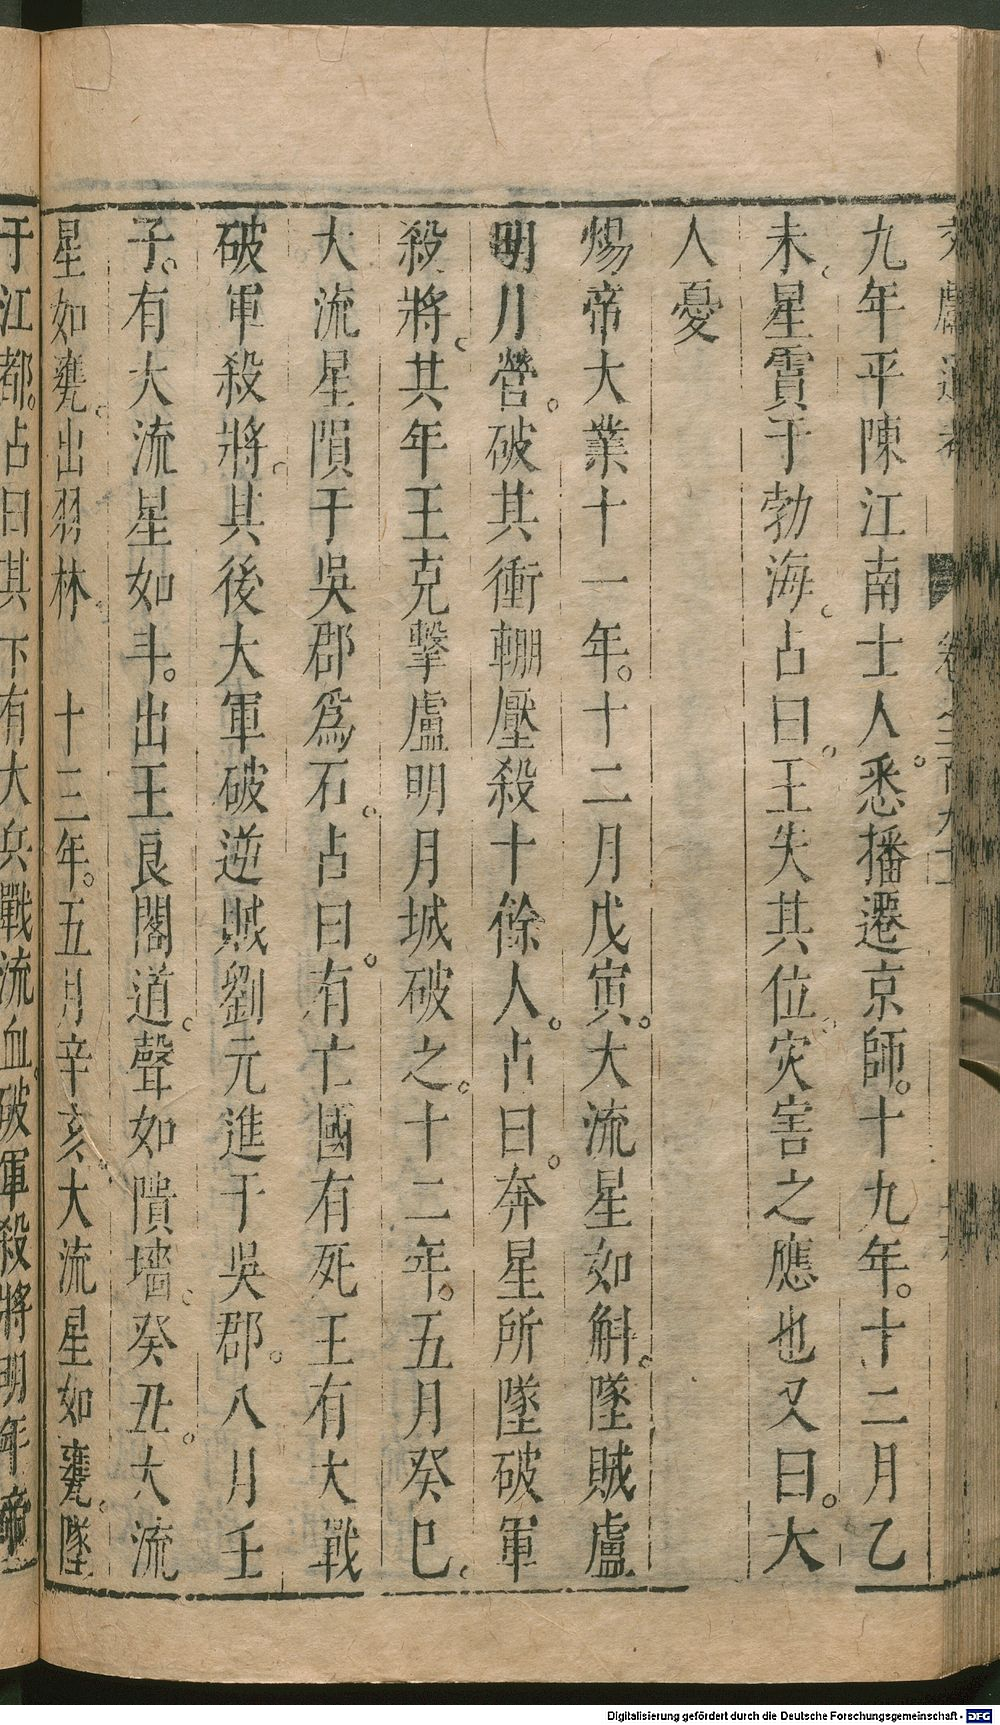 九年平陳江南士人。悉播遷京師。十九年。十二月乙
未。星霣于勃海。占曰。王失其位。灾害之應也又曰。大
人憂
煬帝大業十一年。十二月戊寅。大流星如斛。墜賊盧
明月營。破其衝輣壓殺十餘人。占曰。奔星所墜破軍
殺將。其年王克擊盧明月城破之。十二年。五月癸巳。
大流星隕于吳郡爲石。占曰。有亡國有死王有大戰
破軍殺將。其後大軍破逆賊劉元進于吳郡。八月壬
子。有大流星如斗。出王良閣道。聲如隤墻。癸丑。大流
星如甕。出羽林。 十三年。五月辛亥。大流星如甕。墜
于江都。占曰其下有大兵戰流血。破軍殺將明年帝
Digitalisierung gefördert durch die Deutsche Forschungsgemeinschaft - DFG